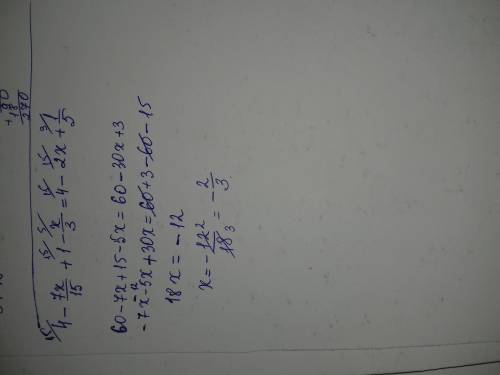 90
+ 18
270
4 - 7x/15 + 1 - x/3 = 4 - 2x + 1/5
60 - 7x + 15 - 5x = 60 - 30x + 3
-7x - 5x + 30x = 60 + 3 - 60 - 15
18x = -12
x = - 12 2/18 3 = - 2/3